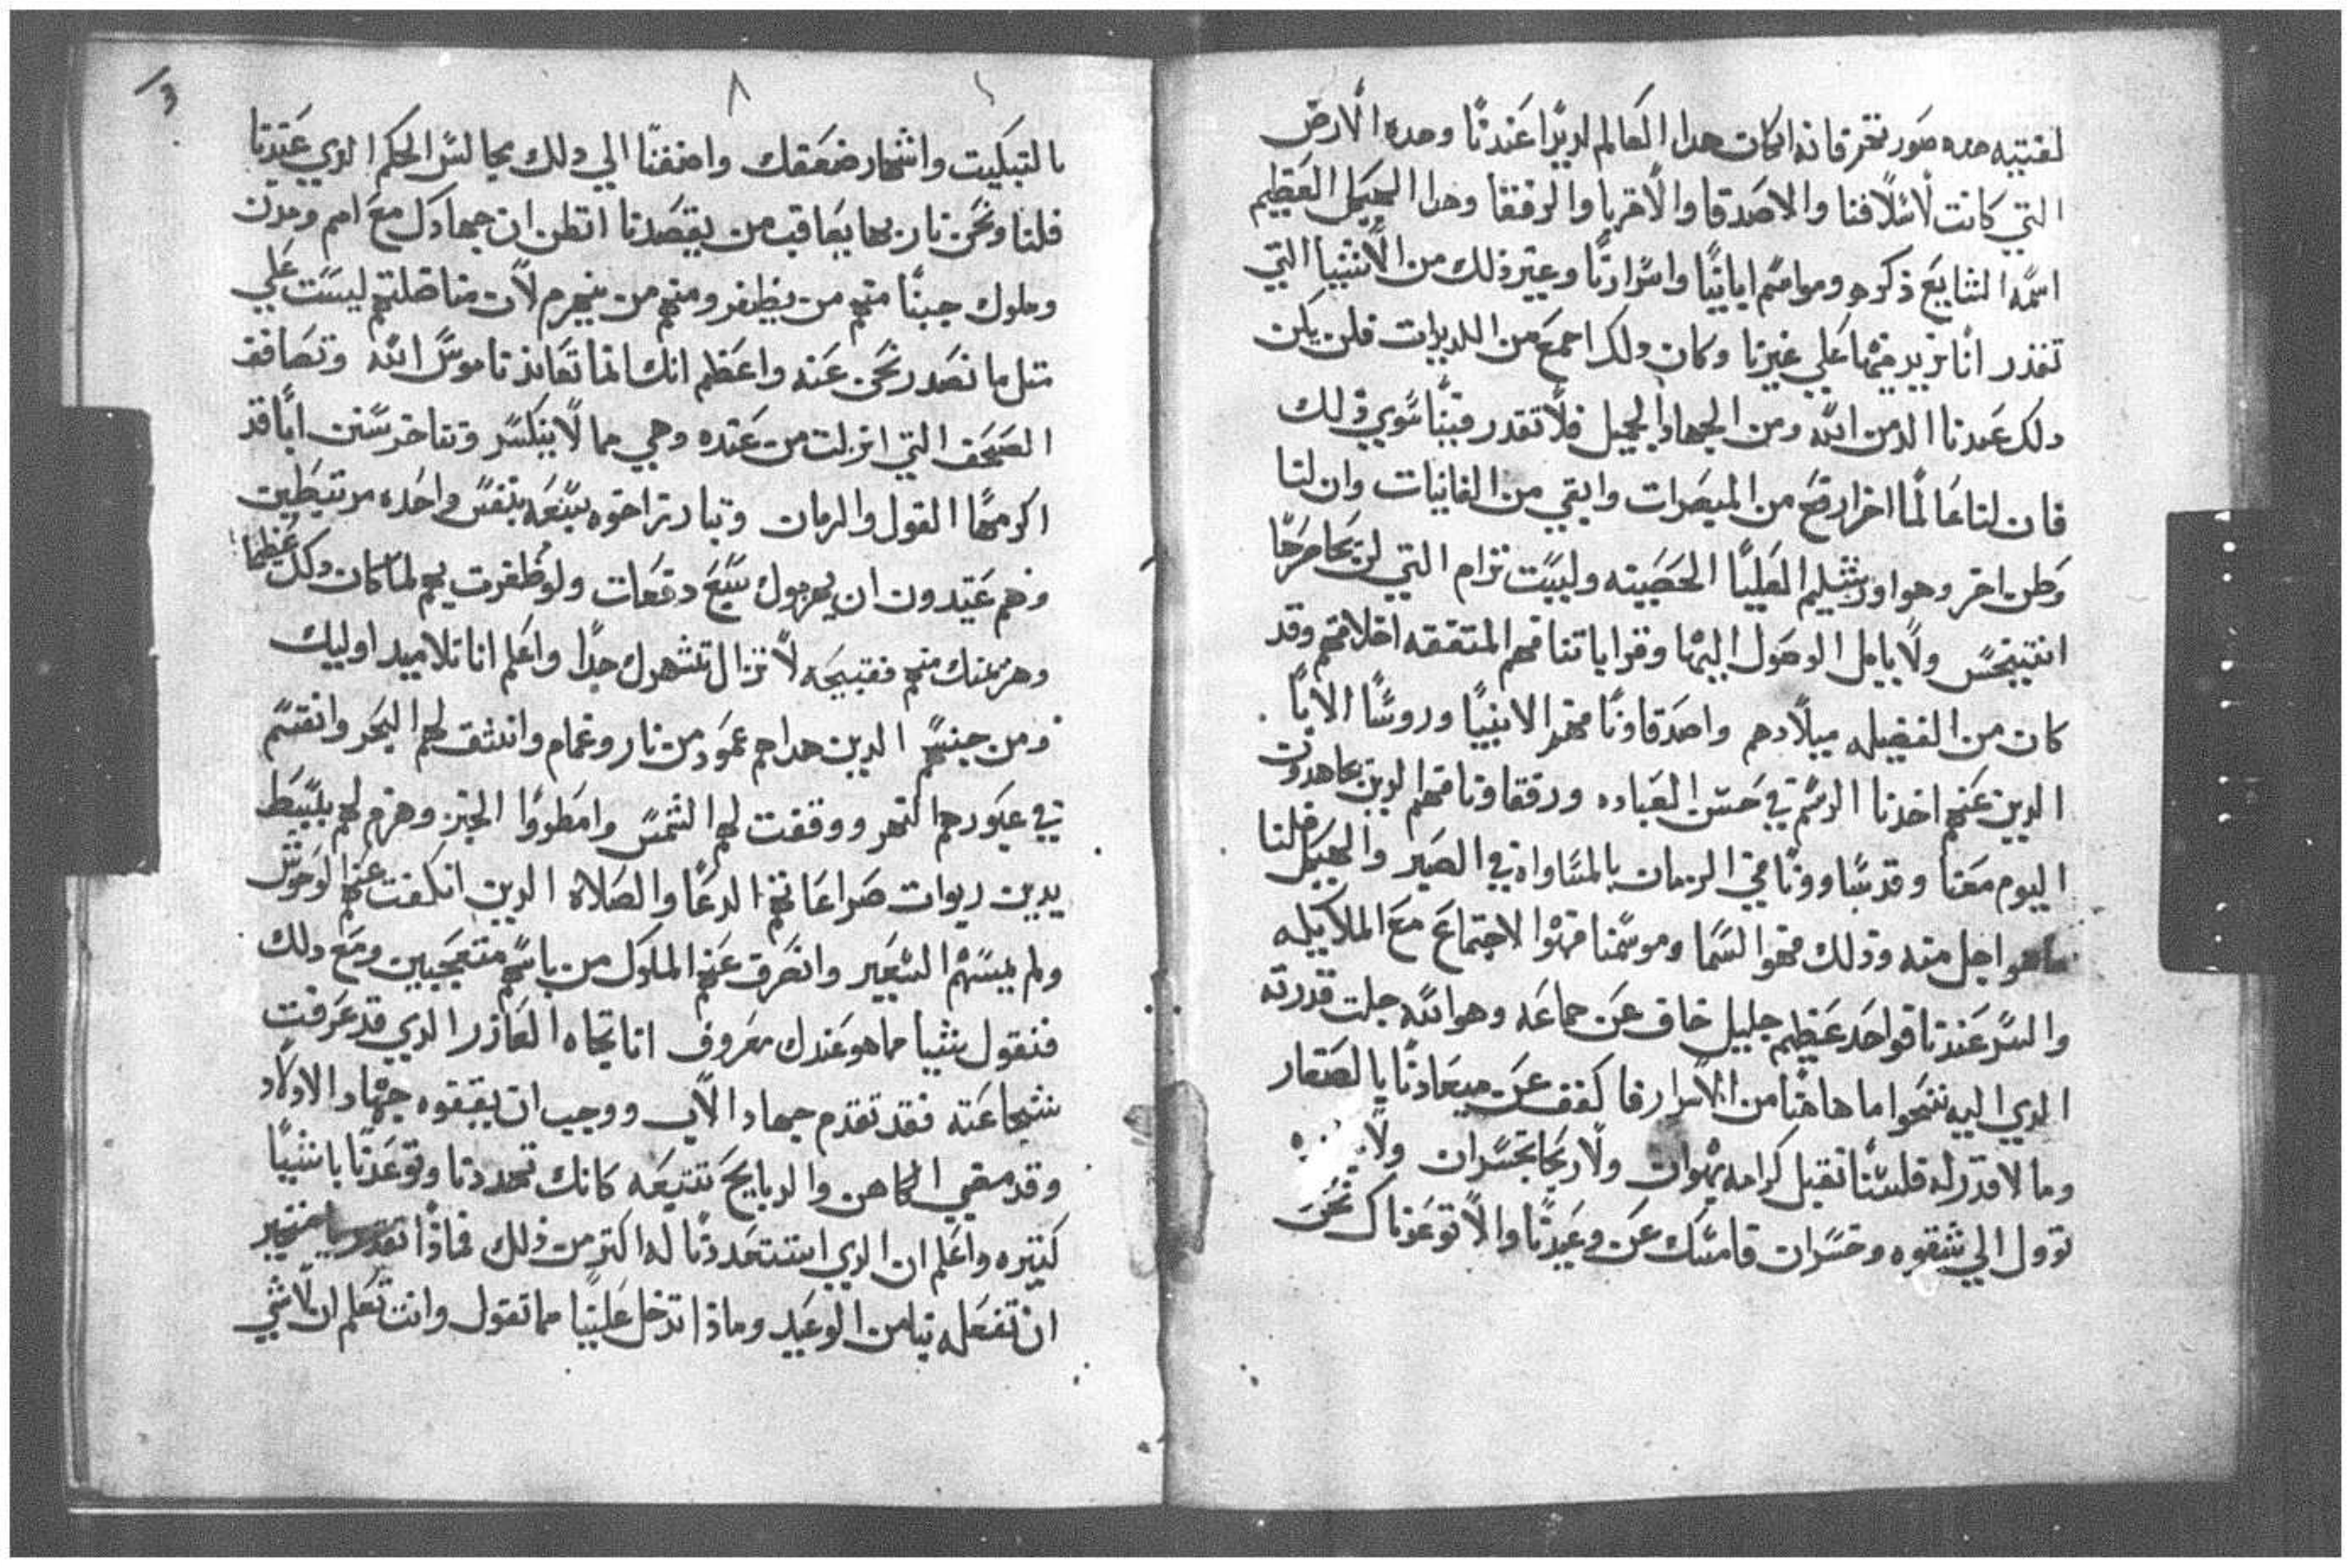 لفتيه هده صور نخر فانه انكان هدا العالم لديدًا عندنا وهده الارض
التي كانت لاسلافنا والاصدقا والاقربا والرفقا وهدا الهيكل العظيم
اسمه الشايع ذكره ومواسم اباينًا واسرارنًا وغير ذلك من الاشيا التي
تقدر انا نزيد فيها على غيرنا وكان دلك اجمع من اللديدات فلن يكن
دلك عندنا الد من الله ومن الجهاد الجميل فلا تقدر فينا سوي ذلك
فان لنا عالمًا اخر ارفع من المبصرات وابقي من الفانيات وان لنا
وطن اخر وهو اورشليم العليا الحصينه وليست ترام التي لن يحاصرها
انتيخس ولا يامل الوصول اليها وقرايا تنا فهم المتفقه اخلاقهم وقد
كان من الفضيله ميلادهم واصدقاونا فهم الانبيا وروسا الابا
الدين عنهم اخدنا الرسم في حسن العباده ورفقاونا فهم الدين يجاهدون
اليوم معنا وقد ساوونا في الزمان بالمساواه في الصبر والهيكل فلنا
ماهو اجل منه وذلك فهو السما وموسمنا فهو الاجتماع مع الملايكه
والسر عندنا فواحد عظيم جليل خاف عن جماعه وهو الله جلت قدرته
الدي اليه نتحوا ما هاهنا من الاسرار فاكفف عن ميعادنا بالصغار
وما لا قدر له فلسنا نقبل كرامه بهوان ولا ربحا بخسران ولا
توول الي شقوه وخسران فامسك عن وعيدنا والا توعدناك نحن
بالتبكيت واشهار ضعفك واضفنا الي دلك مجالس الحكم الدي عندنا
فلنا ونحن نار بها يعاقب من يقصدنا اتظن ان جهادك مع امم ومدن
وملوك جبنا منهم من يظفر ومنهم من ينهزم لان مناضلتهم ليست علي
مثل ما نصدر نحن عنه واعظم انك انما تعاند ناموس الله وتصافف
الصحف التي انزلت من عنده وهي مما لا ينكسر وتناخر سنن اباقد
اكرمها القول والزمان وتبادر اخوه سبعه بنفس واحده مرتبطين
وهم عتيدون ان يهزموك سبع دفعات ولو ظفرت بهم لما كان دلك عظيما
وهزيمتك منهم فقبيحه لا تزال تشهرك جدا واعلم انا تلاميد اوليك
ومن جنسهم الدين هداهم عمود من نار وغمام وانشق لهم البحر وانقسم
في عبورهم النهر ووقفت لهم الشمس وامطروا الخبز وهزم لهم ببسط
يدين ربوات صراعاتهم الدعا والصلاه الدين انكفت عنهم الوحوش
ولم يمسهم السعير وانصرف عنهم الملوك من باسهم متعجبين ومع دلك
فنقول شيا مما هو عندك معروف انا تجاه العازر الدي قد عرفت
شجاعته فقد تقدم جهاد الاب ووجب ان يقفوه جهاد الاولاد
وقد مضي الكاهن والدبايح تتبعه كانك تحددنا وتوعدنا باشيا
كتيره واعلم ان الدي استعددنا له اكتر من ذلك فماذا تقدر
ان تفعله بنا من الوعيد وماذا تدخل علينا مما تقول وانت تعلم ان لا شي